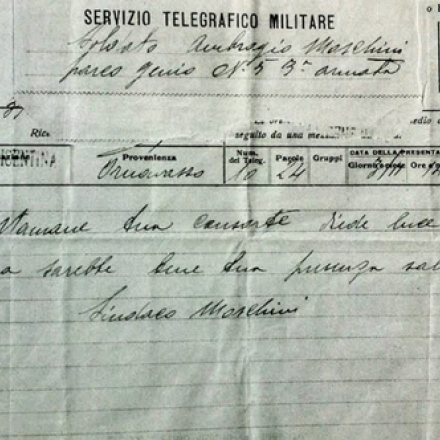 SERVIZIO TELEGRAFICO MILITARE
Soldato Ambrogio Moschini
parco genio N. 5 3ª armata
Ric
seguito da una me
Provenienza Num. del Teleg. Parole Gruppi DATA DELLA PRESENTA
Giorni e mese Ore e
Ornavasso 10 24
Stamane tua consorte diede luce
sarebbe bene tua presenza
Sindaco Moschini